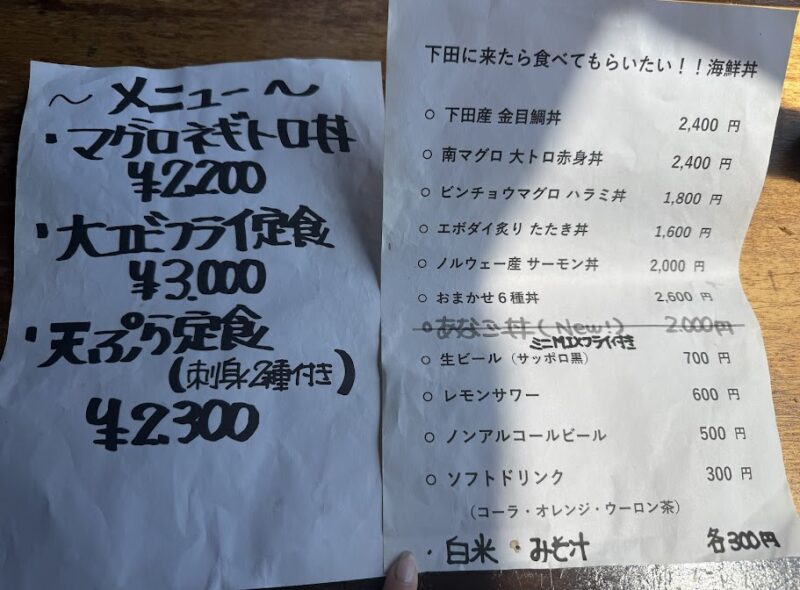 ~ メニュー ~
・マグロネギトロ丼
¥2,200
・大エビフライ定食
¥3,000
・天ぷら定食
(刺身2種付き)
¥2,300
下田に来たら食べてもらいたい！！海鮮丼
○ 下田産 金目鯛丼 2,400 円
○ 南マグロ 大トロ赤身丼 2,400 円
○ ビンチョウマグロ ハラミ丼 1,800 円
○ エボダイ炙り たたき丼 1,600 円
○ ノルウェー産 サーモン丼 2,000 円
○ おまかせ６種丼 2,600 円
○あなご丼(New!) 2,000円
ミニMIXフライ付き
○ 生ビール（サッポロ黒） 700 円
○ レモンサワー 600 円
○ ノンアルコールビール 500 円
○ ソフトドリンク 300 円
（コーラ・オレンジ・ウーロン茶）
・白米 ・みそ汁 各300円